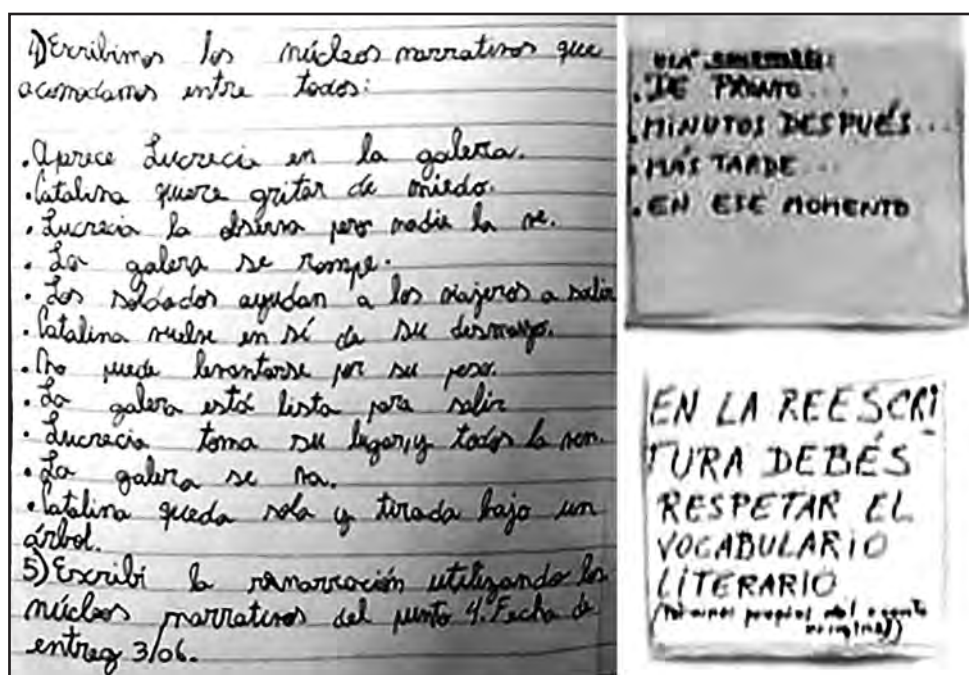 4) Escribimos los núcleos narrativos que
acomodamos entre todos:
. Aprece Lucrecia en la galera.
. Catalina quere gritar de miedo.
. Lucrecia la observa pero nadie la ve.
. La galera se rompe.
. Los soldados ayudan a los viajeros a salir
. Catalina vuelve en sí de su desmayo.
. No puede levantarse por su peso.
. La galera está lista para salir
. Lucrecia toma su lugar, y todos la ven.
. La galera se va.
. Catalina queda sola y tirada bajo un
árbol.
5) Escribí la renarración utitizando los
núcleos narrativos del punto 4. Fecha de
entreg 3/06.
. DE PRONTO...
. MINUTOS DESPUÉS...
. MÁS TARDE...
. EN ESE MOMENTO
EN LA REESCRI
TURA DEBÉS
RESPETAR EL
VOCABULARIO
LITERARIO
(términos propios del cuento
original)